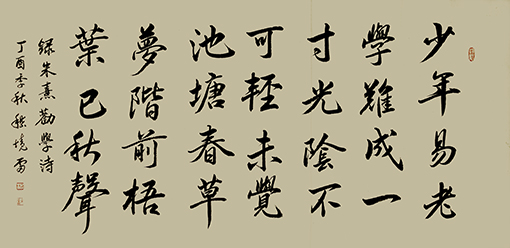 少年易老
學難成一
寸光陰不
可輕未覺
池塘春草
夢階前梧
葉已秋聲
錄朱熹勸學詩
丁酉季秋